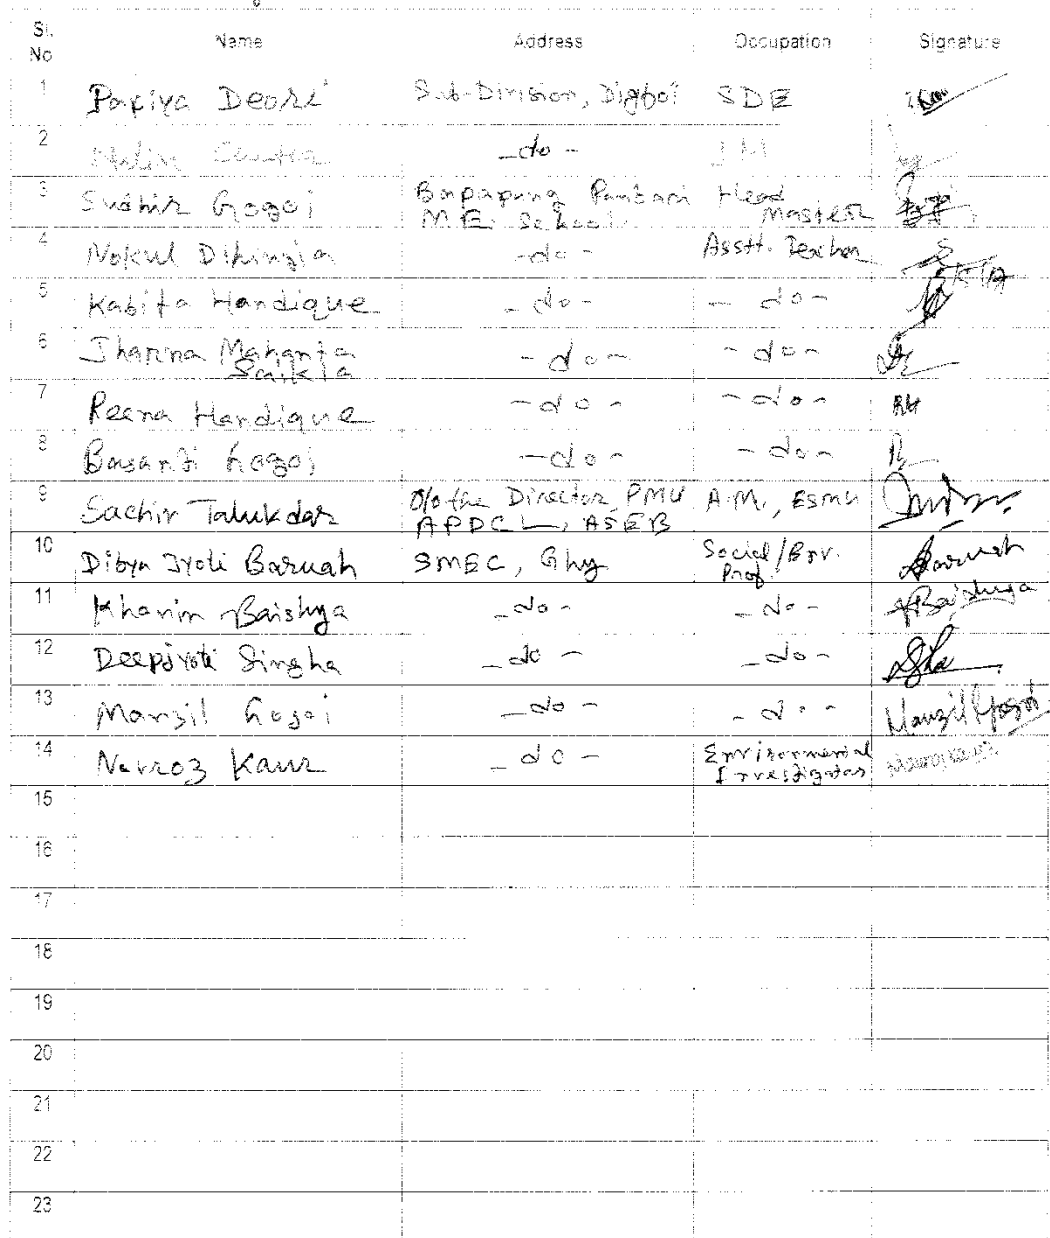 Sl. No Name Address Occupation Signature
1 Papiya Deori Sub-Division, Digboi SDE
2 -do- JM
3 Sudhir Gogoi Borpapung Pantani Head
M.E. School Master
4 Nokul Dihingia -do- Asstt. Teacher
5 Kabita Handique -do- -do-
6 Jharna Mahanta -do- -do-
Saikia
7 Reena Handique -do- -do- RH
8 Basanti Gogoi -do- -do-
9 Sachin Talukdar O/o the Director PMU A.M., ESMU
APDCL, ASEB
10 Dibya Jyoti Baruah SMEC, Ghy Social/Env. Baruah
Prof.
11 Khanin Baishya -do- -do- Baishya
12 Deepjyoti Singha -do- -do-
13 Manzil Gogoi -do- -do- Manzil Gogoi
14 Navroz Kaur -do- Environmental
Investigator
15
16
17
18
19
20
21
22
23